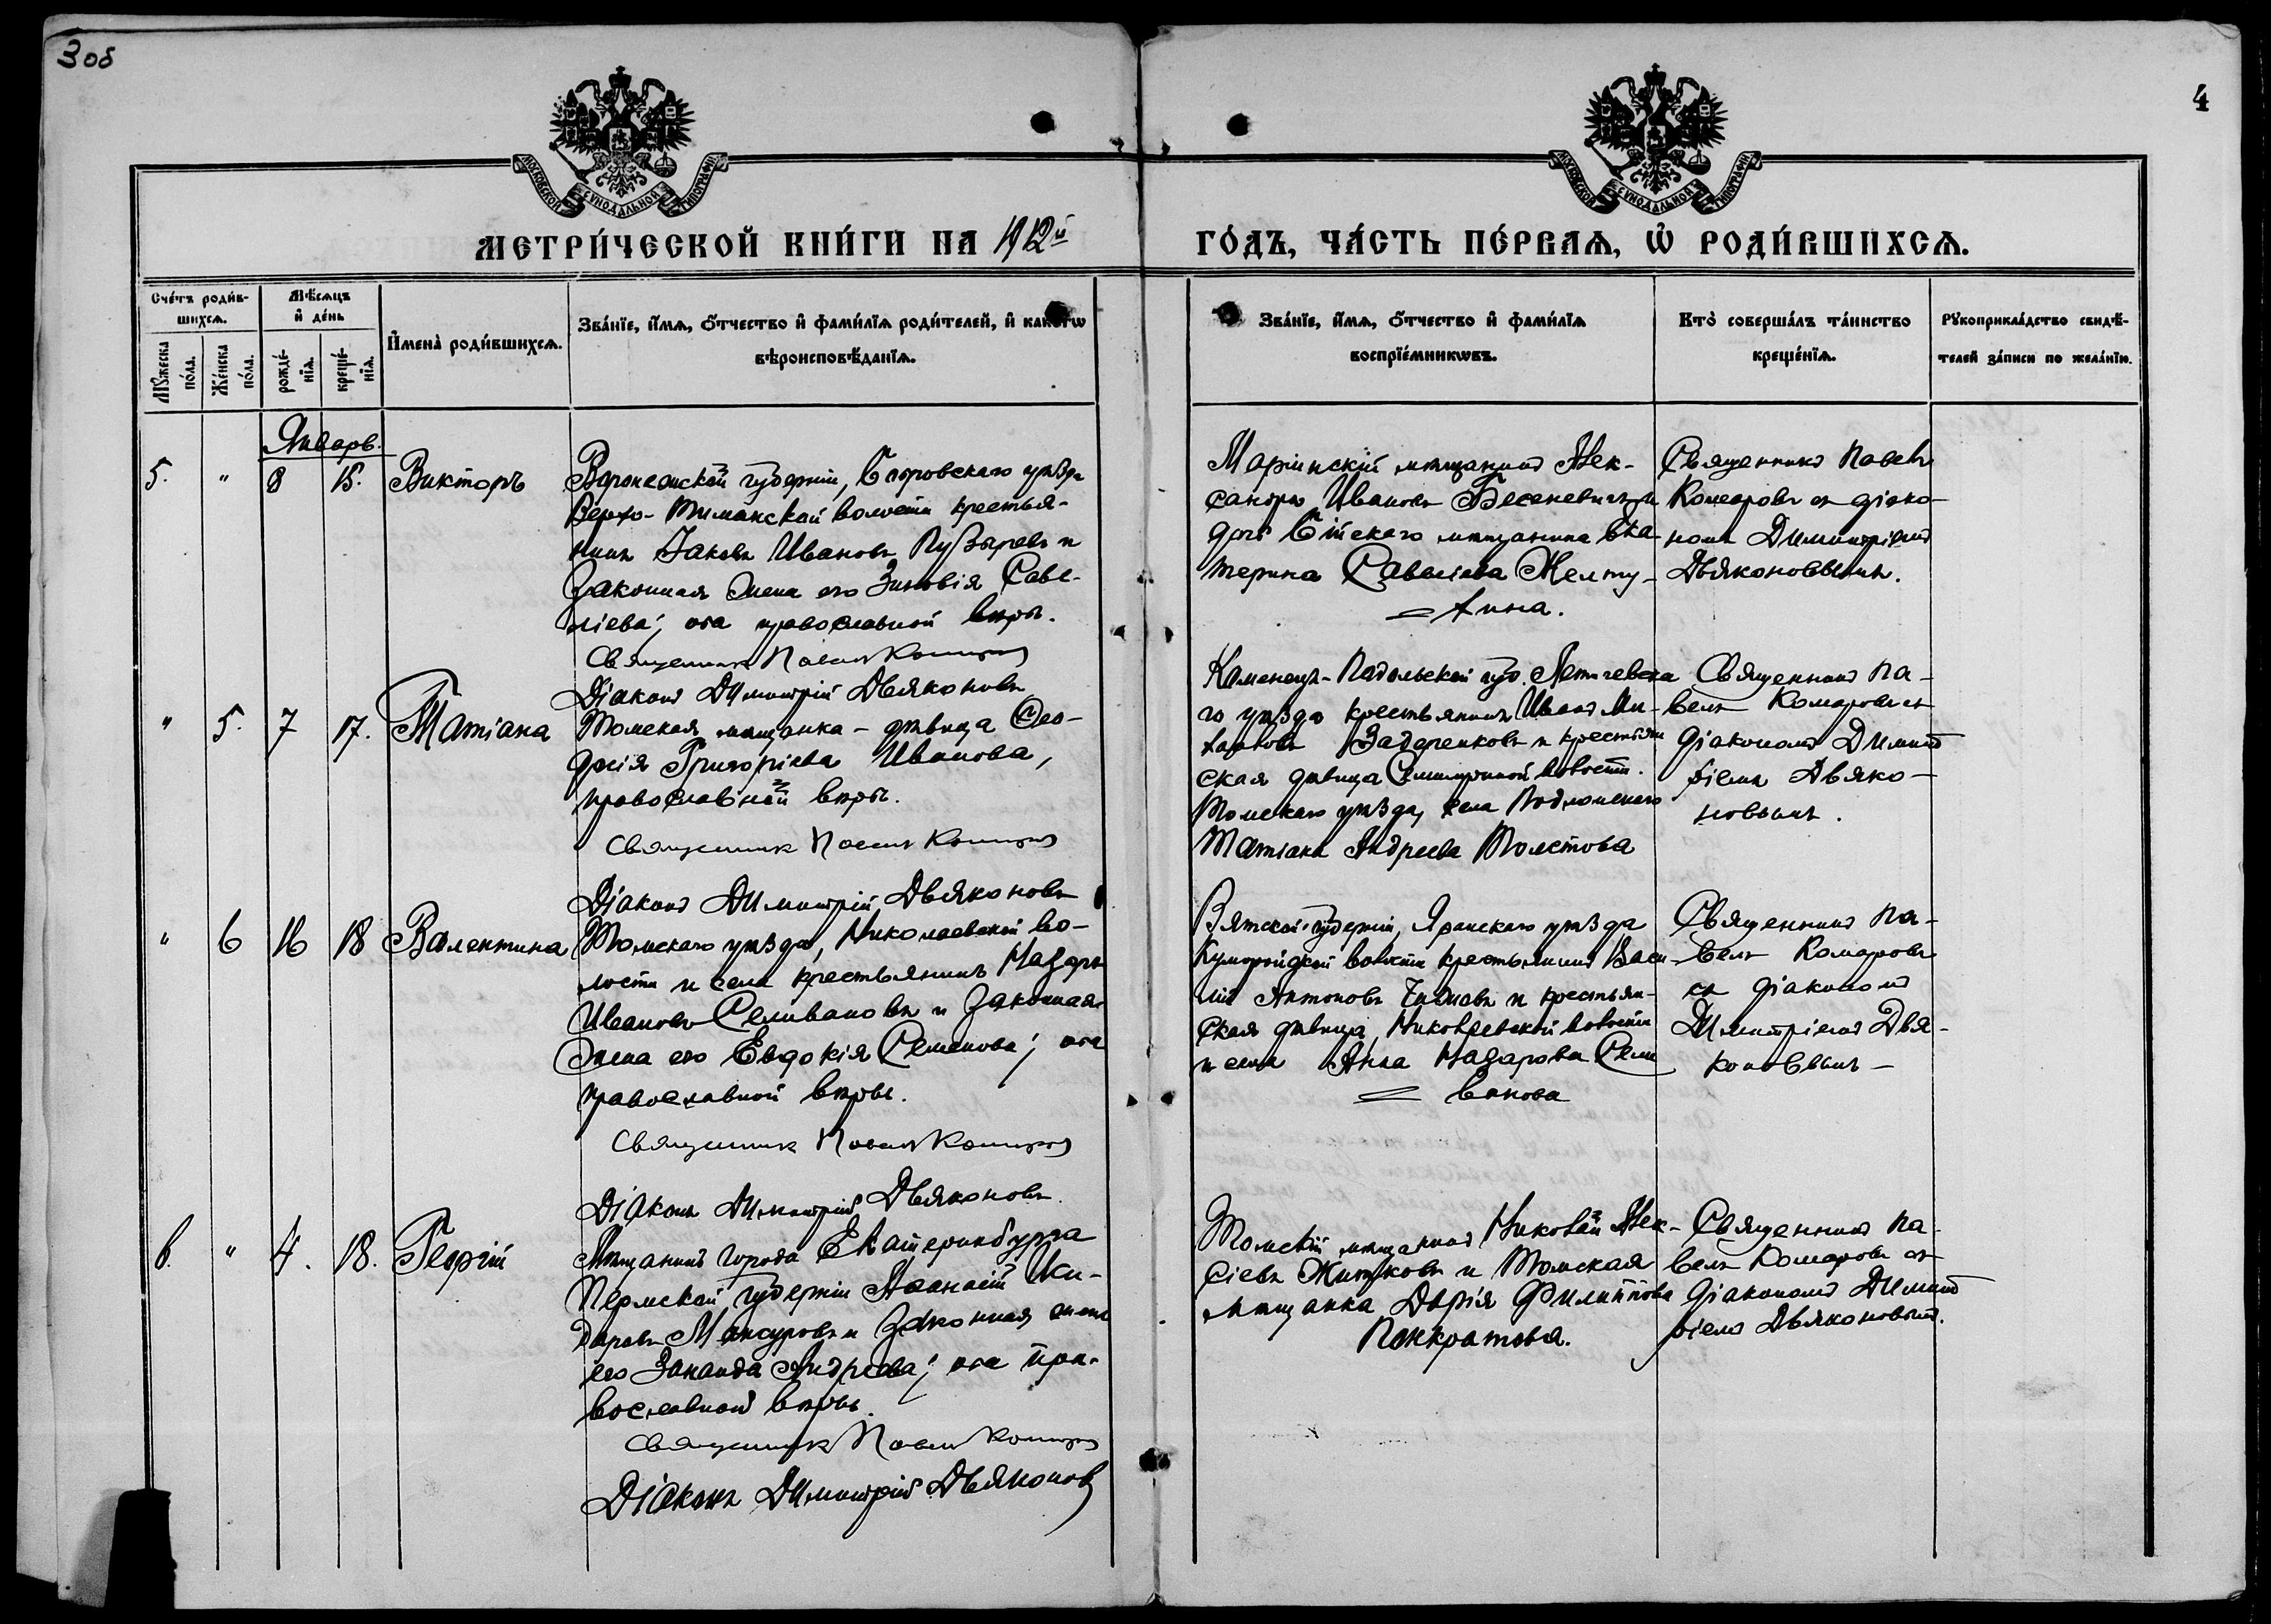 3 об
4
МОСКОВСКОЙ СѴНОДАЛЬНОЙ ТИПОГРАФІИ
МОСКОВСКОЙ СѴНОДАЛЬНОЙ ТИПОГРАФІИ
МЕТРИ́ЧЕСКОЙ КНИ́ГИ НА 1912й
ГО́ДЪ, ЧА́СТЬ ПЕ́РВАѦ, Ѡ РОДИ́ВШИХСѦ.
Сче́тъ роди́в-
шихсѧ.
Мѣ́сѧцъ
и҆ де́нь
Мꙋ́жеска
по́ла.
Же́нска
по́ла.
рожде́-
нїѧ.
креще́-
нїѧ.
И҆мена̀ роди́вшихсѧ.
Зва́нїе, и҆́мѧ, ѻ҆́тчество и҆ фами́лїѧ роди́телей, и҆ како́гѡ
вѣроисповѣ́данїѧ.
Зва́нїе, и҆́мѧ, ѻ҆́тчество и҆ фами́лїѧ
воспрїе́мникѡвъ.
Кто̀ соверша́лъ та́инство
креще́нїѧ.
Рꙋкоприкла́дство свидѣ́-
телей за́писи по жела́нїю.
Январь.
5. " 8 15. Викторъ
Воронежской губерніи, Бобровскаго уѣзда
Верхо-Тишанской волости крестья-
нинъ Іаковъ Ивановъ Пузыревъ и
законная жена его Зиновія Саве-
ліева; оба православной вѣры.
Священникъ Павелъ Комаровъ
Діаконъ Димитрій Дьяконовъ
Маріинскій мѣщанинъ Алек-
сандръ Ивановъ и
дочь Бійскаго мѣщанина Ека-
терина Савеліева Желту-
= хина.
Священникъ Павелъ
Комаровъ съ діако-
номъ Димитріемъ
Дьяконовымъ.
" 5. 7 17. Татіана
Томская мѣщанка - дѣвица Ѳео-
досія Григоріева Иванова,
православной вѣры.
Священникъ Павелъ Комаровъ
Діаконъ Димитрій Дьяконовъ
Каменецъ-Подольской губ. Летичевска
го уѣзда крестьянинъ Иванъ Ми-
хайловъ Задоренковъ и крестьян
ская дѣвица Семилужной волости.
Томскаго уѣзда, села Подломскаго
Татіана Андреева Толстова
Священникъ Па-
велъ Комаровъ съ
діакономъ Димит
ріемъ Дьяко-
новымъ.
" 6 16 18 Валентина
Томскаго уѣзда, Николаевской во-
лости и села крестьянинъ Назаръ
Ивановъ Селивановъ и законная
жена его Евдокія Семенова; оба
православной вѣры.
Священникъ Павелъ Комаровъ
Діаконъ Димитрій Дьяконовъ.
Вятской губерніи, Яранскаго уѣзда
волости крестьянинъ Васи
лій Антоновъ и крестьян-
ская дѣвица, Николаевской волости
и села Анна Назарова Сели
= ванова
Священникъ Па-
велъ Комаровъ
съ діакономъ
Димитріемъ Дья-
коновымъ -
6. " 4. 18. Георгій
Мѣщанинъ города Екатеринбурга
Пермской губерніи Аѳанасій Иси-
доровъ Мансуровъ и законная жена
его Андреева; оба пра-
вославной вѣры.
Священникъ Павелъ Комаровъ
Діаконъ Димитрій Дьяконовъ
Томскій мѣщанинъ Николай Алек-
сіевъ Житковъ и Томская
мѣщанка Дарія Филиппова
Панкратова.
Священникъ Па-
велъ Комаровъ съ
діакономъ Димит
ріемъ Дьяконовымъ.